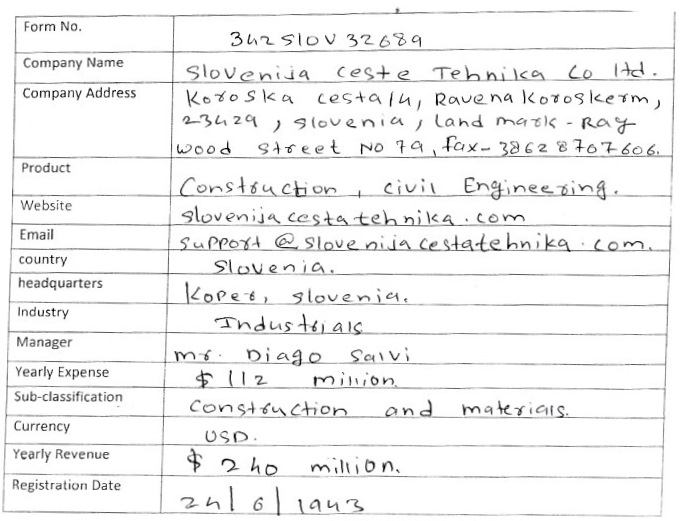 Form No. 342SLOV32689
Company Name Slovenija ceste Tehnika Co ltd.
Company Address Koroska cesta 14, Ravena Koroskerm,
23429, Slovenia, land mark - Ray
wood street No 79, fax- 38628707606.
Product Construction, civil Engineering.
Website slovenijacestatehnika.com
Email support@slovenijacestatehnika.com.
country Slovenia.
headquarters Koper, slovenia.
Industry Industrials
Manager mr. Diago Salvi
Yearly Expense $ 112 million.
Sub-classification construction and materials.
Currency USD.
Yearly Revenue $ 240 million.
Registration Date 24/6/1943